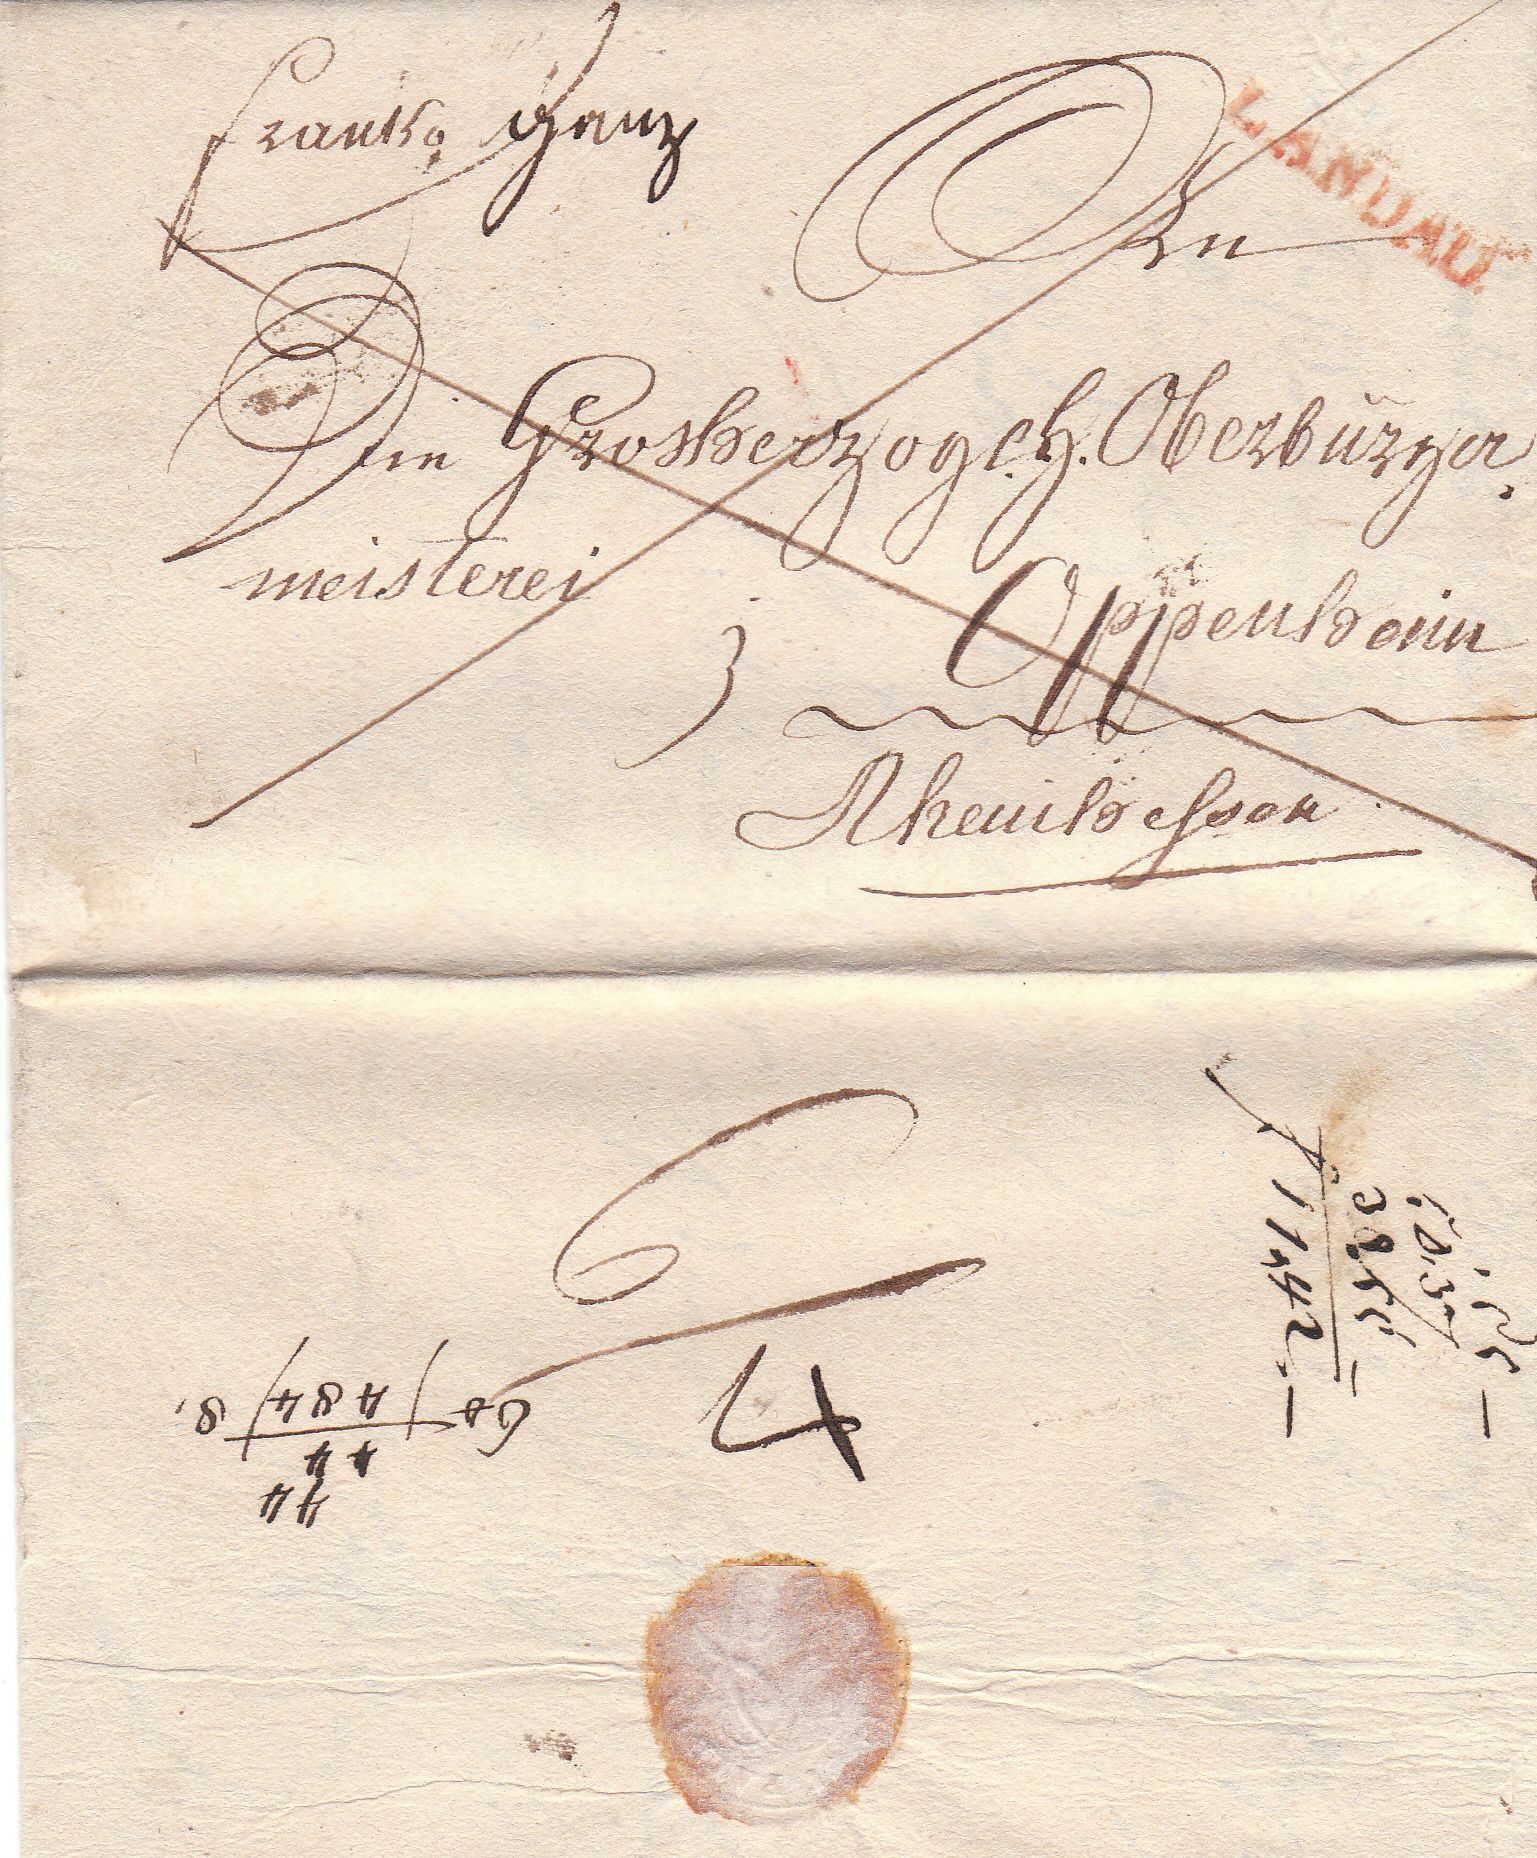 franko Ganz
LANDAU.
An
Die Grosherzoglch. Oberbürger
meisterei
Oppenheim
Rheinhessen
6
4
60/484/8.
44
44
3855 –
1142. –